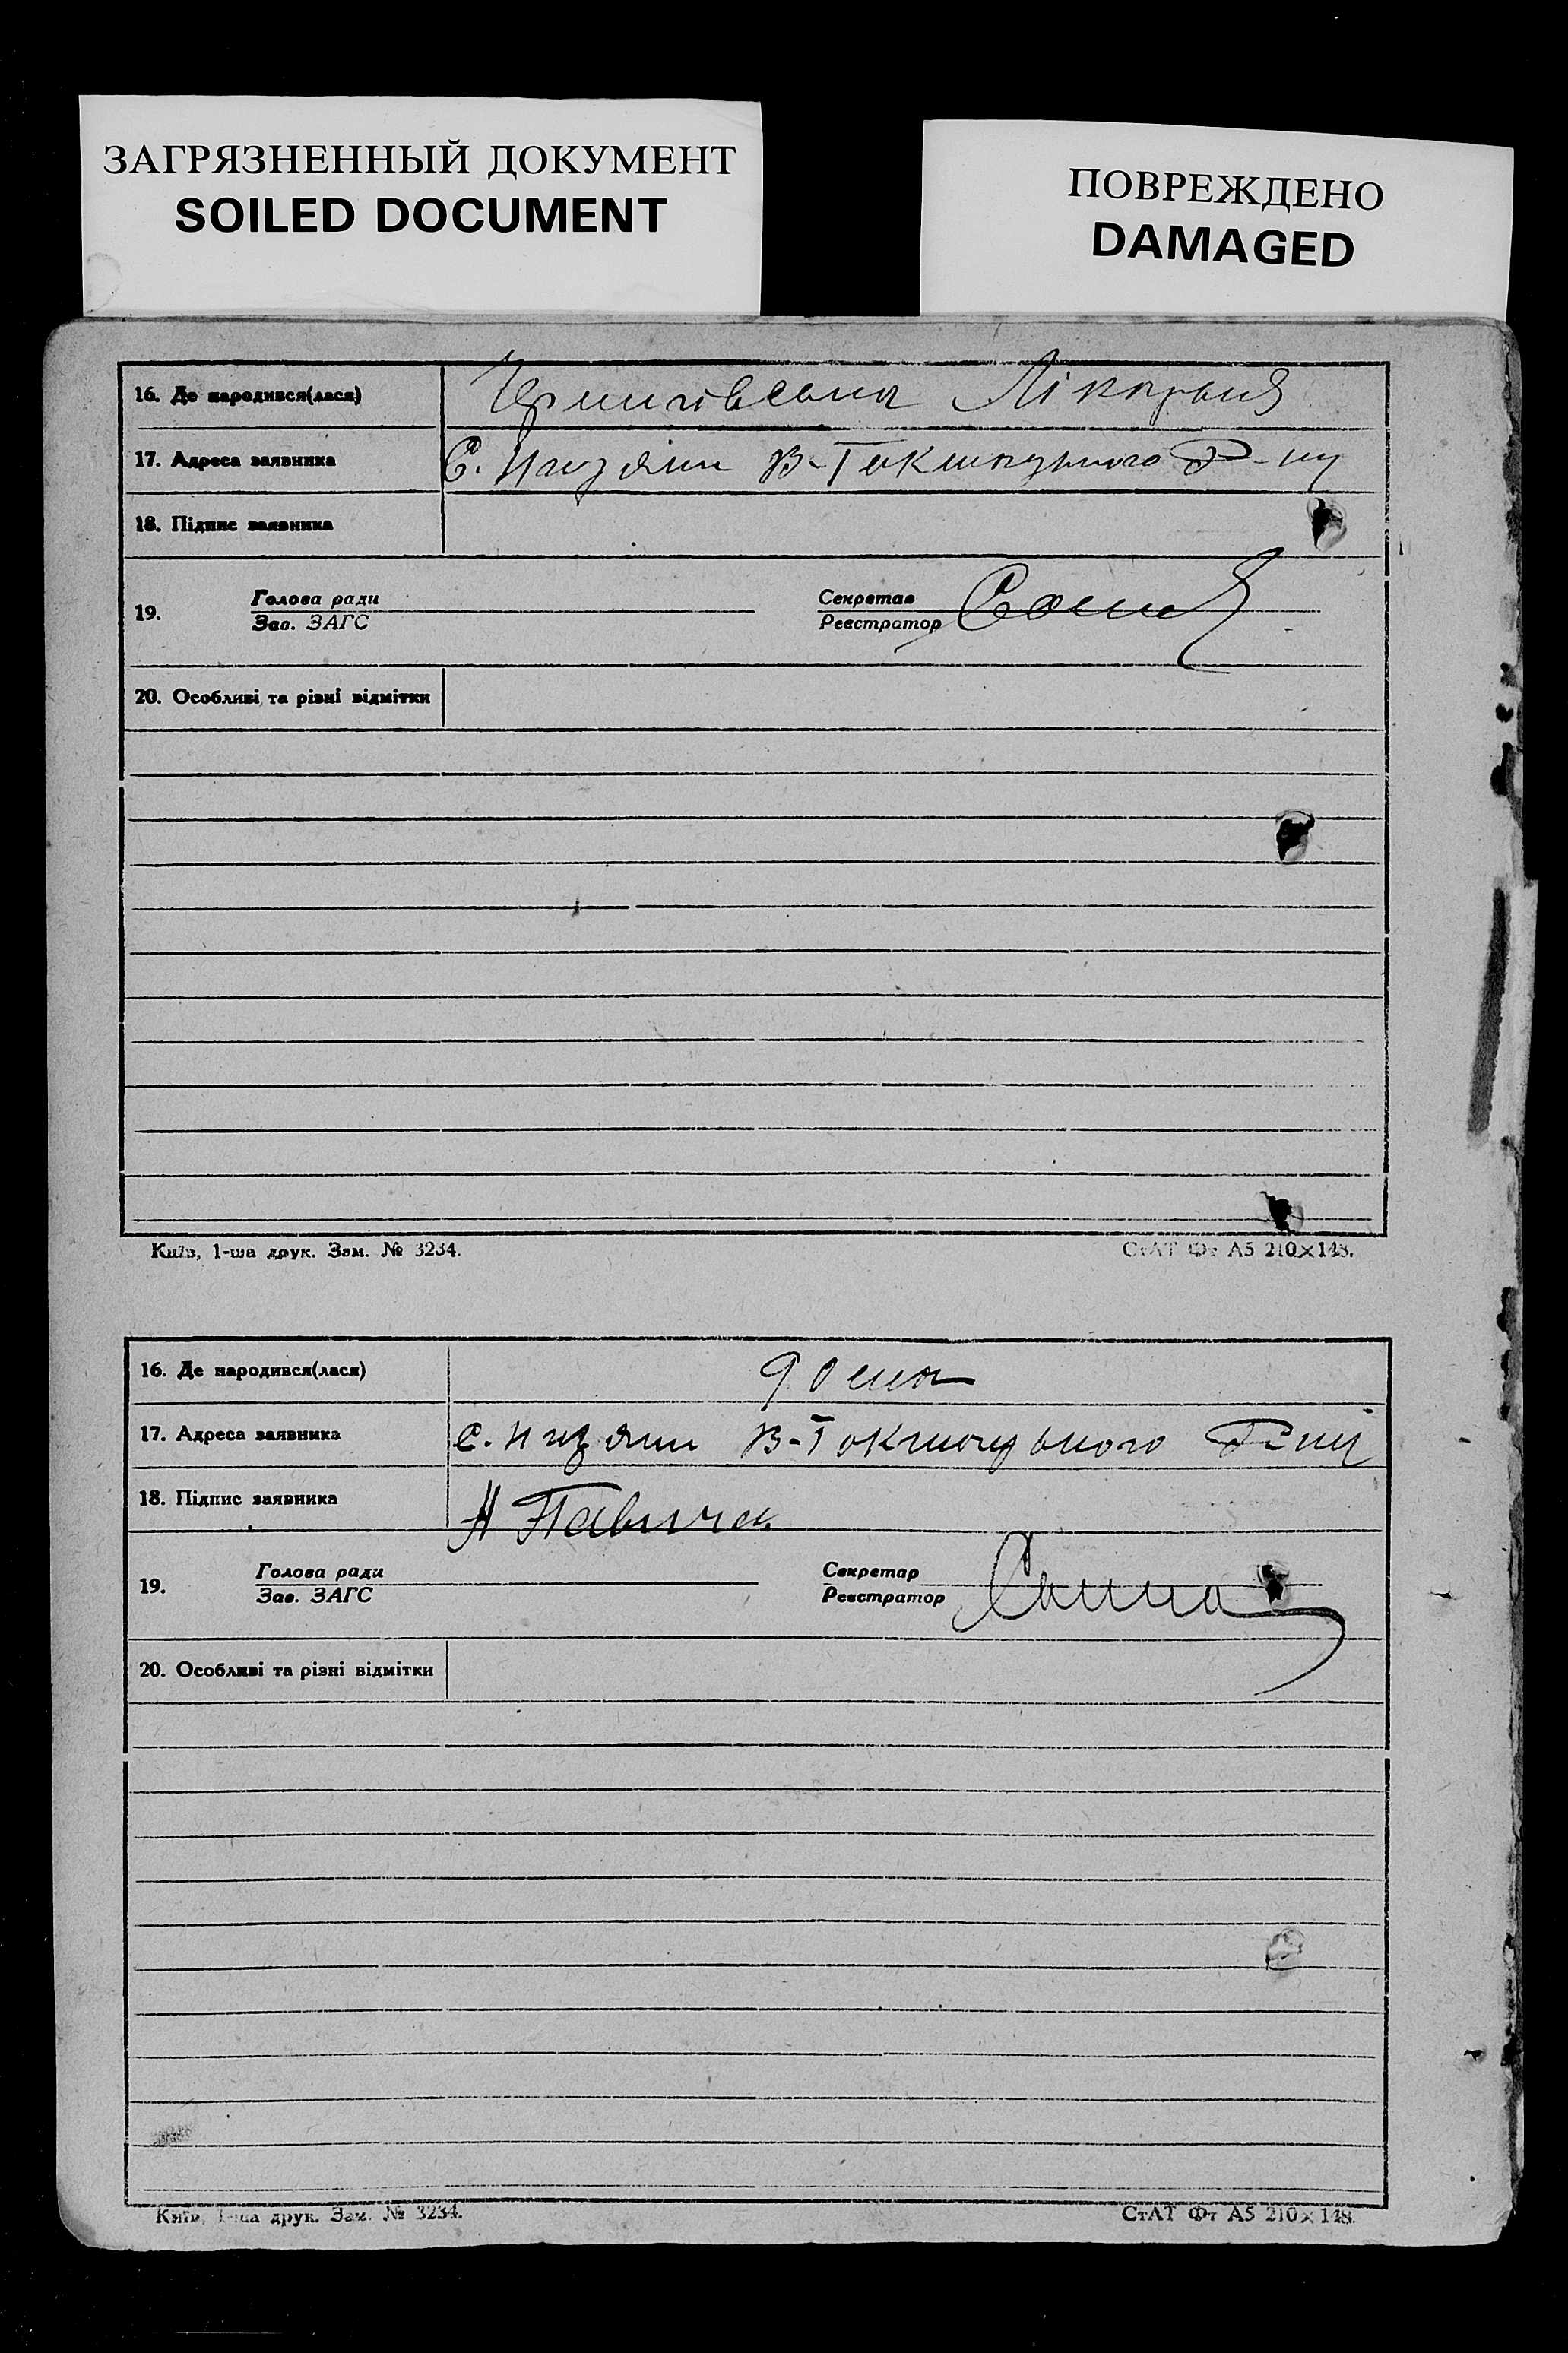 ЗАГРЯЗНЕННЫЙ ДОКУМЕНТ
SOILED DOCUMENT
ПОВРЕЖДЕНО
DAMAGED
16. Де народився(лася)
17. Адреса заявника С. В-Токмацького Р-ну
18. Підпис заявника
19. Голова ради Секретар
Зав. ЗАГС Реєстратор
20. Особливі та різні відмітки
Київ, 1-ша друк. Зам. № 3234. СтАТ Фт А5 210×148.
16. Де народився(лася) дома
17. Адреса заявника с. В-Токмацького Р-ну
18. Підпис заявника
19. Голова ради Секретар
Зав. ЗАГС Реєстратор
20. Особливі та різні відмітки
Київ, 1-ша друк. Зам. № 3234. СтАТ Фт А5 210×148.